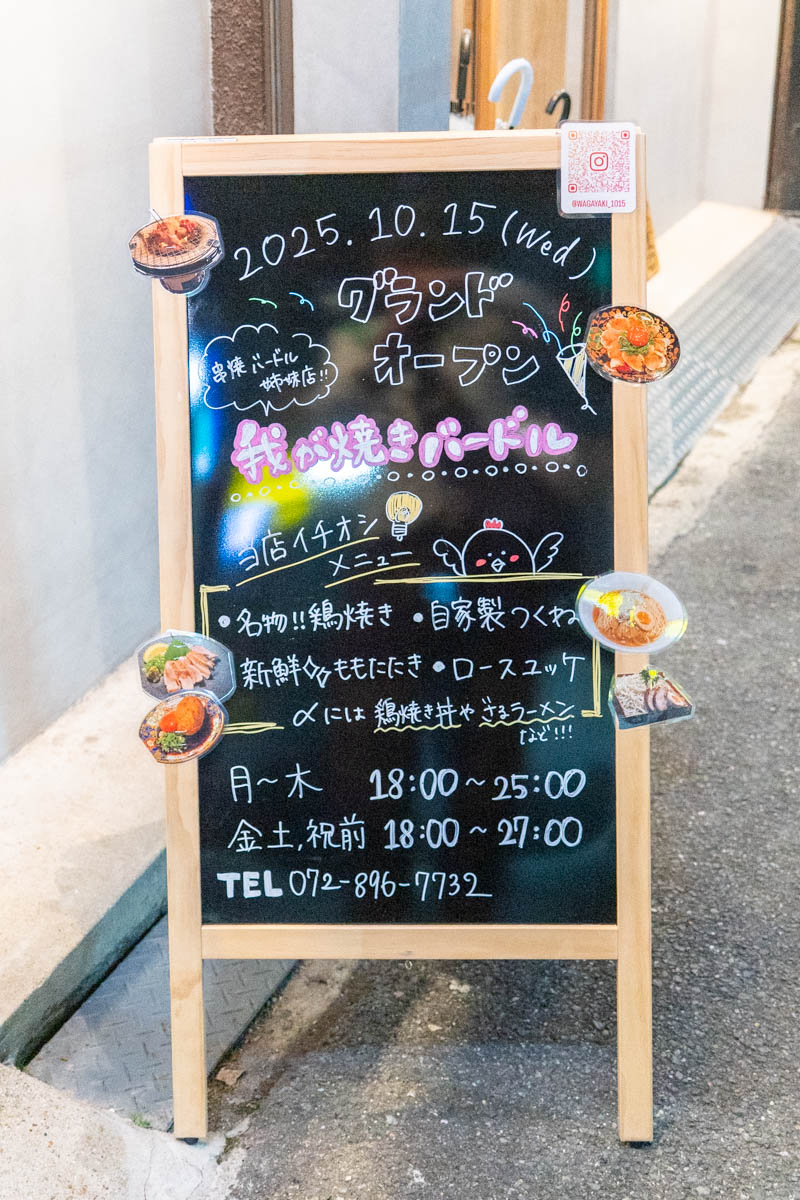 @WAGAYAKI_1015
2025.10.15(Wed)
グランド
オープン
串焼バードル
姉妹店!!
我が焼きバードル
ヨ店イチオシ
メニュー
・名物!!鶏焼き ・自家製つくね
新鮮ももたたき ・ロースユッケ
〆には 鶏焼き丼や ざるラーメン
など!!!
月〜木 18:00〜25:00
金土,祝前 18:00〜27:00
TEL 072-896-7732